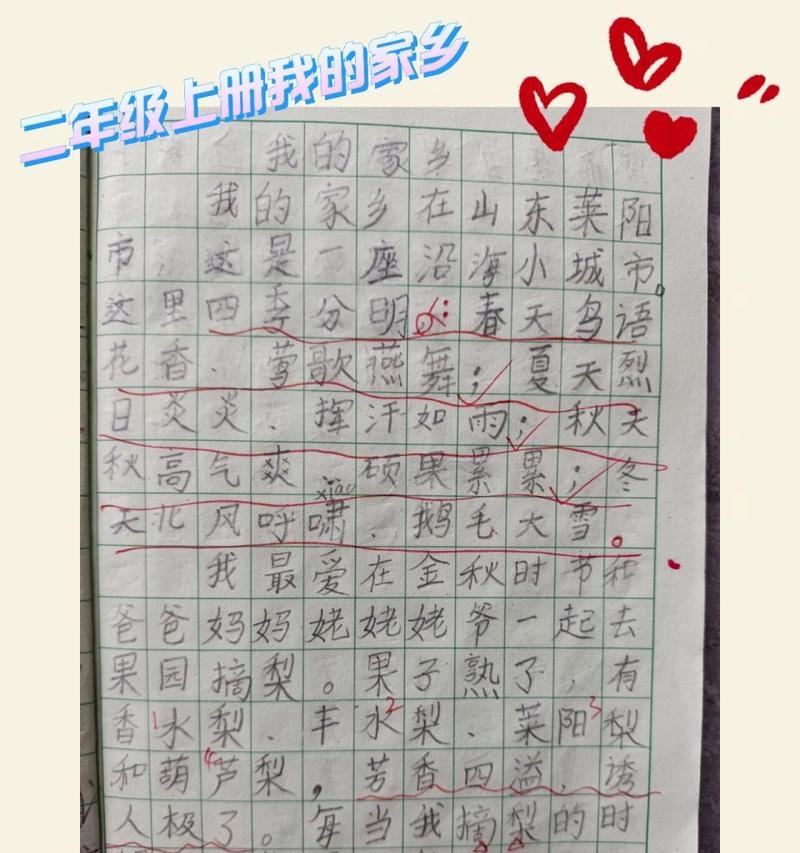 二年级上册我的家乡
我的家乡
我的家乡在山东莱阳
市，这是一座沿海小城市。
这里四季分明：春天鸟语
花香、莺歌燕舞；夏天烈
日炎炎、挥汗如雨；秋天
秋高气爽、硕果累累；冬
xiào
天北风呼啸、鹅毛大雪。
我最爱在金秋时节和
爸爸妈妈姥姥姥爷一起去
果园摘梨。果子熟了，有
香1水梨、丰水2梨、莱阳3梨
和葫4芦梨，芳香四溢，诱
人极了。每当我摘梨的时